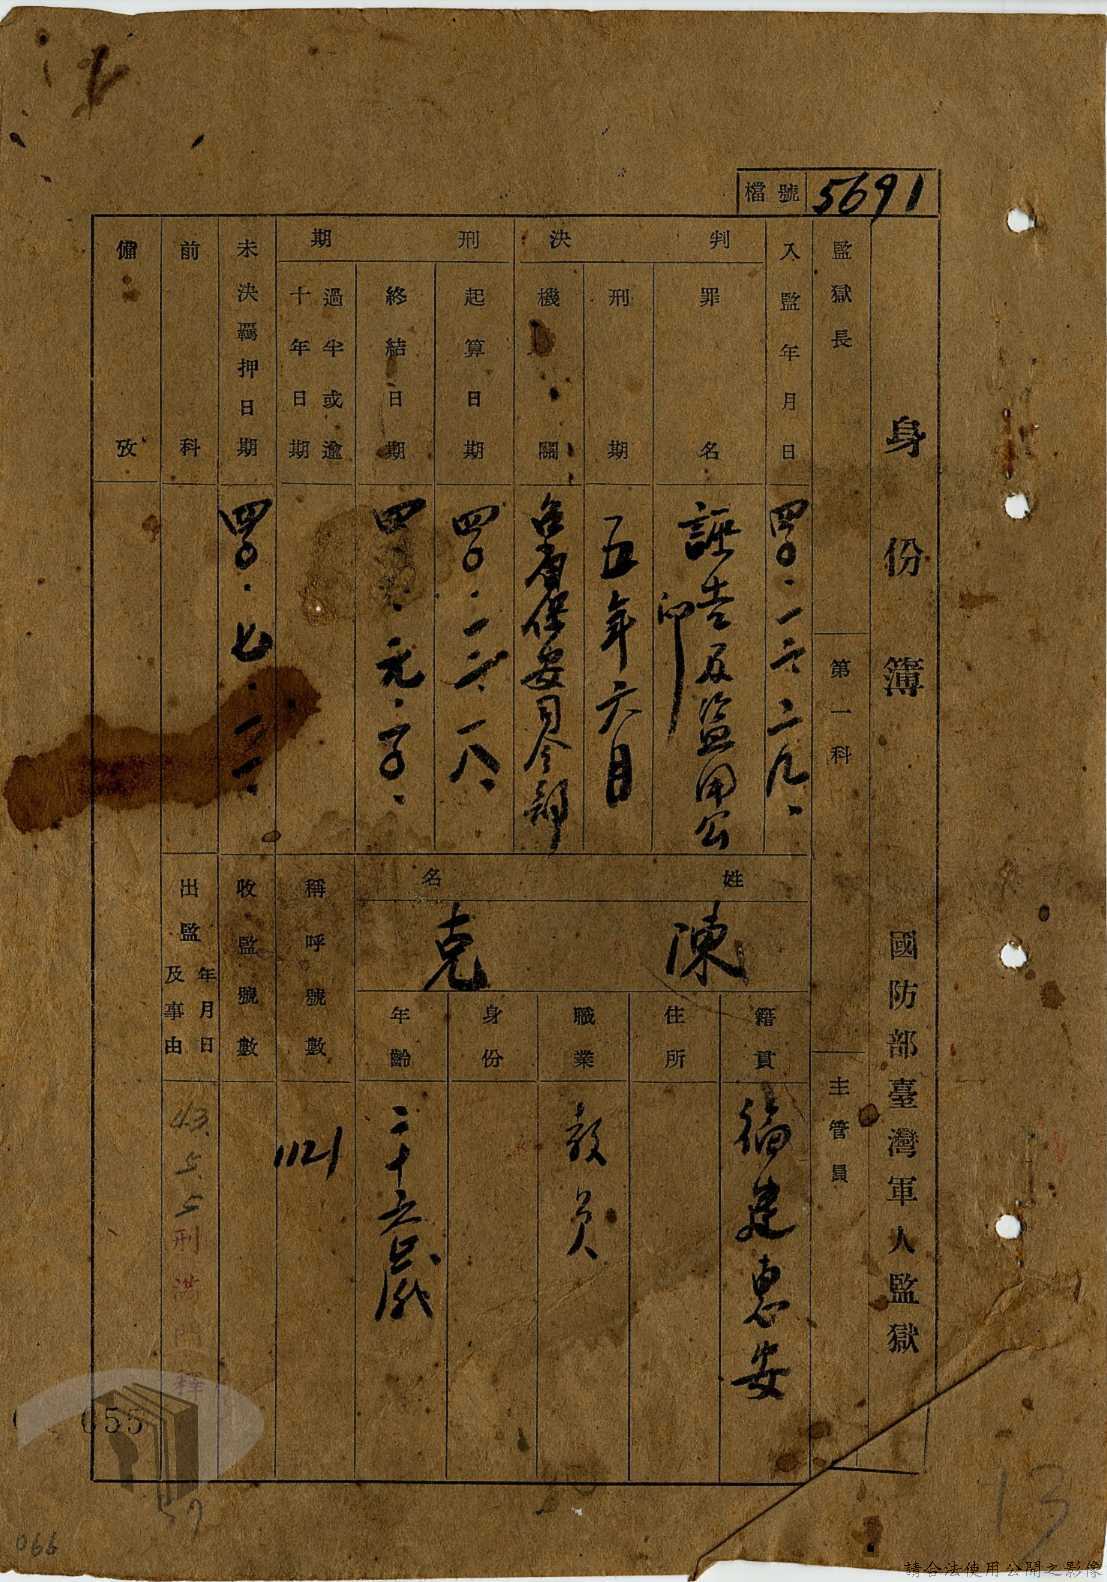 檔號 5691
身份簿 國防部臺灣軍人監獄
監獄長
第一科
主管員
入監年月日
四〇.一二.二九.
判決
罪名
誣告及盜用公印
刑期
五年六月
機關
台省保安司令部
刑期
起算日期
四〇.一二.一八.
終結日期
過半或逾十年日期
未決羈押日期
四〇.七.二一.
前科
備攷
姓名
陳克
籍貫
福建惠安
住所
職業
教員
身份
年齡
稱呼號數
1121
收監號數
出監年月日及事由
43.5.5
刑
釋
055
57
066
13
請合法使用公開之影像